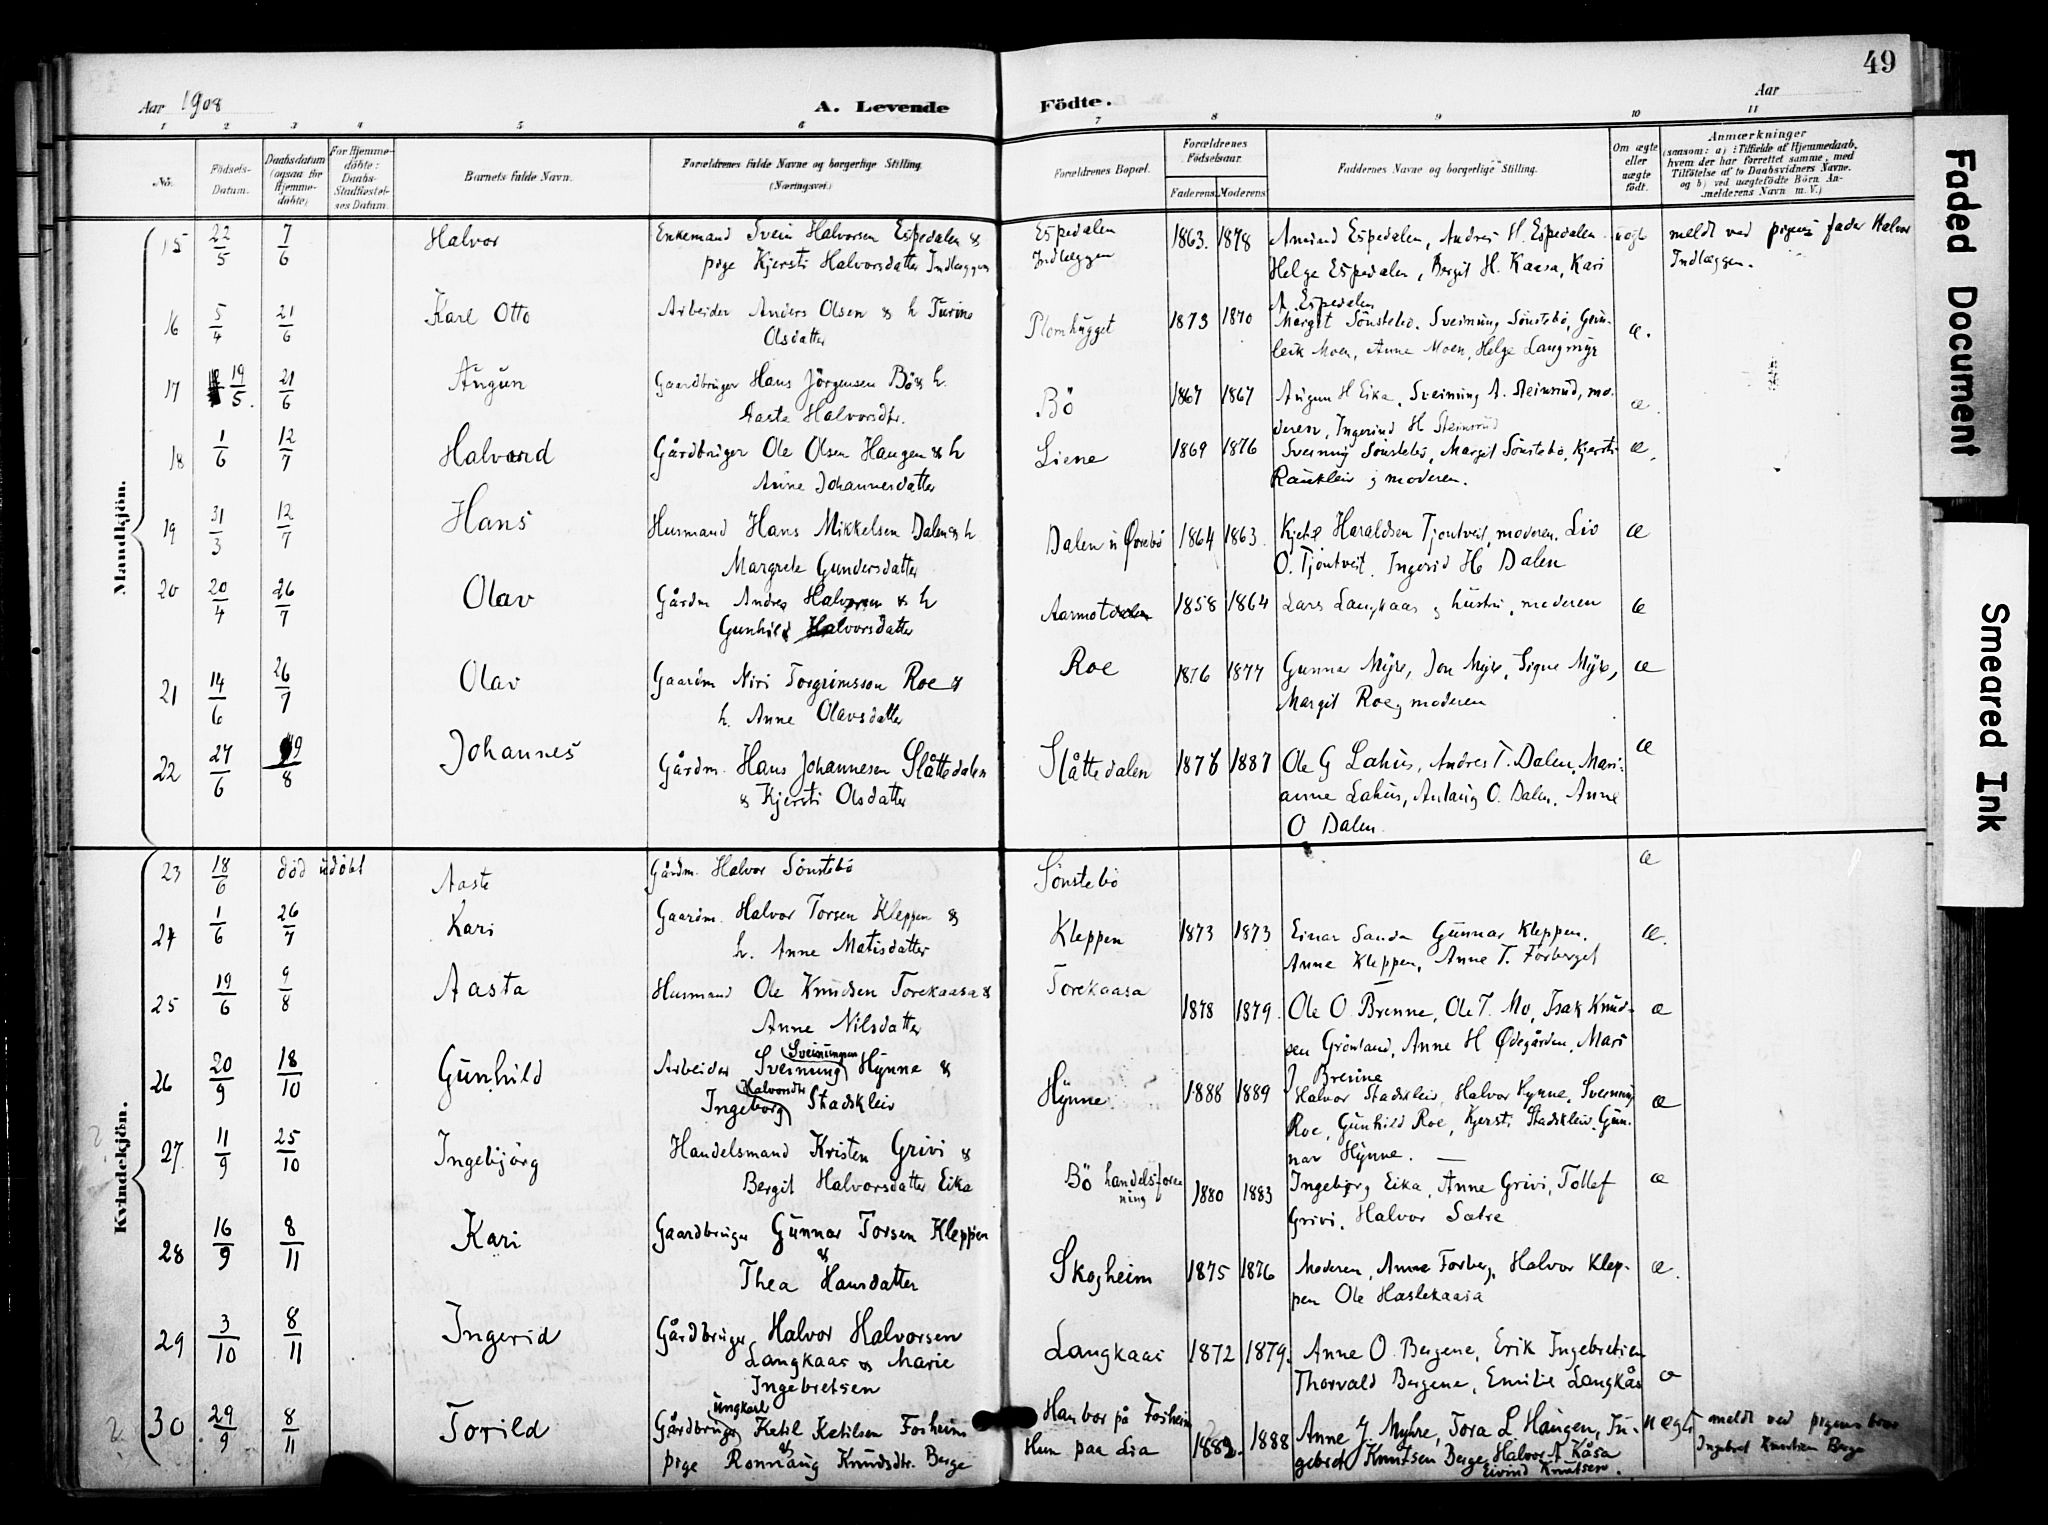 49
Aar 1908
A. Levende Födte.
Aar
1 2 3 4 5 6 7 8 9 10 11
No.
Födsels-Datum.
Daabsdatum (ogsaa for Hjemme-døbte)
For Hjemme-døbte: Daabs-Stadfæstelses Datum.
Barnets fulde Navn.
Forældrenes fulde Navne og borgerlige Stilling. (Næringsvei.)
Forældrenes Bopæl.
Forældrenes Födselsaar.
Faderens. Moderens.
Faddernes Navne og borgerlige Stilling.
Om ægte eller uægte født.
Anmærkninger
(saasom: a) i Tilfælde af Hjemmedaab, hvem der har forrettet samme, med Tilföielse af to Daabsvidners Navne. og b) ved uægtefödte Börn Anmelderens Navn m. V.)
Mandkjön.
15 22/5 7/6 Halvor Enkemand Svein Halvorsen Espedalen & Espedalen 1863. 1878 Amund Espedalen, Andres H. Espedalen uægt meldt ved pigens fader Halvor
pige Kjersti Halvorsdatter Indlæggen Indlæggen Helge Espedalen, Bergit H. Kaasa, Kari Indlæggen.
A Espedalen
16 5/4 21/6 Karl Otto Arbeider Anders Olsen & h Turine Plomhugget 1873 1870 Margit Sönstebö. Sveinung Sönstebö, Gun- æ.
Olsdatter leik Moen, Anne Moen, Helge Langmyr
17 19/5. 21/6 Augun Gaardbruger Hans Jörgensen Bö & h. Bö 1867 1867 Augun H Eika, Sveinung A. Steinsrud, mo- æ.
Aaste Halvorsdtr. deren, Ingerind H Steinsrud
18 1/6 12/7 Halvard Gårdbruger Ole Olsen Haugen & h Liene 1869 1876 Sveinung Sönstebö, Margit Sönstebö, Kjersti æ.
Anne Johannesdatter Raukleiv, moderen.
19 31/3 12/7 Hans Husmand Hans Mikkelsen Dalen & h Dalen u Örebö 1864 1863. Kjetil Haraldsen Tjontveit, moderen, Liv æ
Margrete Gundersdatter O. Tjöntveit. Ingerid H Dalen
20 20/4 26/7 Olav Gårdm Andres Halvorsen & h Aarmotdalen 1858 1864 Lars Langkaas & hustru, moderen æ
Gunhild Halvorsdatter
21 14/6 26/7 Olav Gaardm Niri Torgrimsson Roe & Roe 1876 1877 Gunnar Myre, Jon Myre, Signe Myre, æ
h. Anne Olavsdatter Margit Roe, moderen
22 27/6 9/8 Johannes Gårdm. Hans Johannesen Slåttedalen Slåttedalen 1876 1887 Ole G Lahus, Andres T. Dalen, Mari- æ
& Kjersti Olsdatter anne Lahus, Aslaug O. Dalen, Anne
O Dalen.
Kvindekjön.
23 18/6 död udöbt Aaste Gårdm. Halvor Sönstebö Sönstebö æ
24 1/6 26/7 Kari Gaardm. Halvor Torsen Kleppen & Kleppen 1873 1873 Einar Sanda Gunnar Kleppen. æ.
h. Anne Matisdatter Anne Kleppen, Anne T. Forberget
25 19/6 9/8 Aasta Husmand Ole Knudsen Torekaasa & Torekaasa 1878 1879. Ole O. Brenne, Ole T. Mo, Isak Knud- æ
Anne Nilsdatter sen Grönland, Anne H Ødegården, Mari
J Brenne
26 20/9 18/10 Gunhild Arbeider Sveinung Sveinungsen Hynne & Hynne. 1888 1889 Halvor Stadskleiv, Halvor Hynne, Sveinung æ
Ingeborg Halvorsdtr Stadskleiv Roe, Gunhild Roe, Kjersti Stadskleiv, Gun-
nar Hynne. —
27 11/9 25/10 Ingebjörg Handelsmand Kristen Grivi & Bö handelsfore- 1880 1883 Ingebjörg Eika, Anne Grivi, Tollef æ
Bergit Halvorsdatter Eika ning Grivi, Halvor Sætre
28 16/9 8/11 Kari Gaardbruger Gunnar Torsen Kleppen Skogheim 1875 1876 Moderen, Anne Forberg, Halvor Klep- æ.
& Thea Hansdatter pen Ole Haslekaasa
29 3/10 8/11 Ingerid Gårdbruger Halvor Halvorsen Langkaas 1872 1879. Anne O. Bergene, Erik Ingebretsen
Langkaas & Marie Thorvald Bergene, Emilie Langkås æ
Ingebretsen
30 29/9 8/11 Torild ungkarl Gårdbruger Ketil Ketilsen Forheim Han bor på Forheim 1882. 1888 Anne J. Myhre, Tora L Haugen, In- uægte meldt ved pigens bror
& pige Rönnaug Knudsdtr. Berge Hun paa Lia gebret Knutsen Berge, Halvor A Kåsa Ingebret Knutsen Berge
Eivind Knutsen.
Faded Document
Smeared Ink